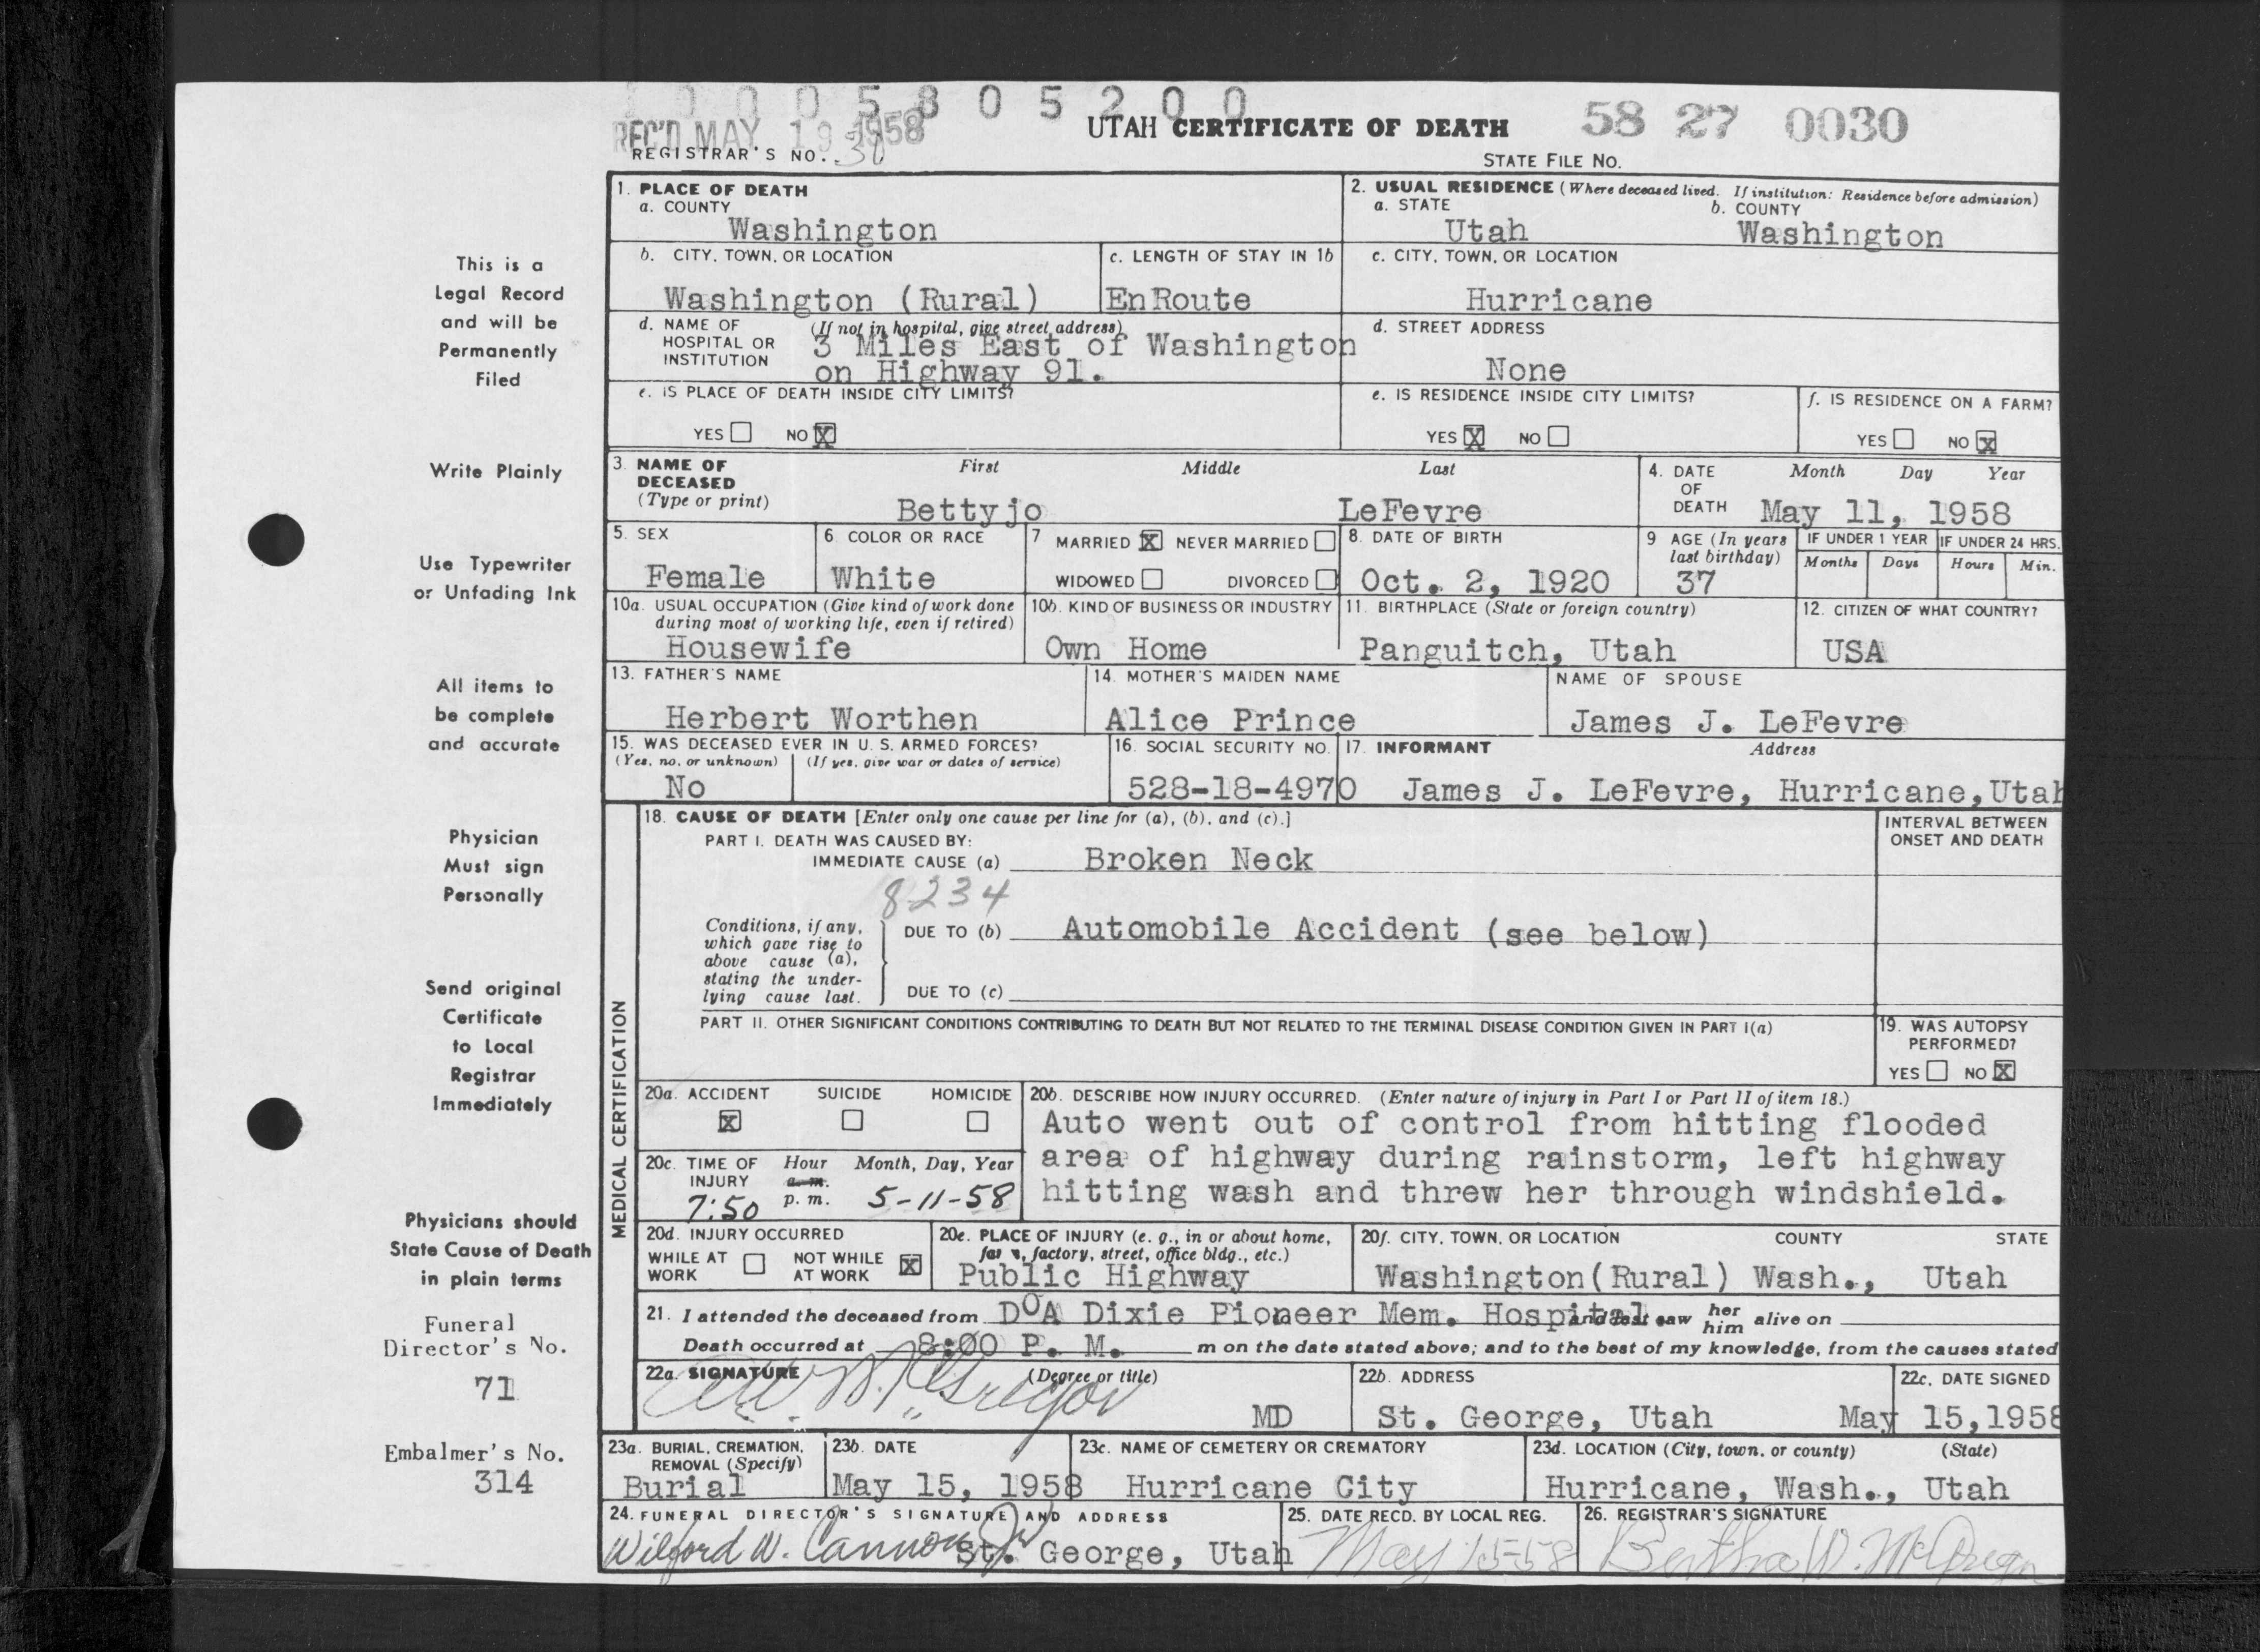 1 0 0 0 5 8 0 5 2 0 0
REC'D MAY 19 1958
UTAH CERTIFICATE OF DEATH
58 27 0030
REGISTRAR'S NO. 30
STATE FILE NO.
1. PLACE OF DEATH
a. COUNTY
Washington
2. USUAL RESIDENCE (Where deceased lived. If institution: Residence before admission)
a. STATE
b. COUNTY
Utah
Washington
b. CITY, TOWN, OR LOCATION
Washington (Rural)
c. LENGTH OF STAY IN 1b
EnRoute
c. CITY, TOWN, OR LOCATION
Hurricane
d. NAME OF HOSPITAL OR INSTITUTION
(If not in hospital, give street address)
3 Miles East of Washington
on Highway 91.
d. STREET ADDRESS
None
e. IS PLACE OF DEATH INSIDE CITY LIMITS?
YES NO X
e. IS RESIDENCE INSIDE CITY LIMITS?
YES X NO
f. IS RESIDENCE ON A FARM?
YES NO X
3. NAME OF DECEASED
(Type or print)
First Middle Last
Bettyjo LeFevre
4. DATE OF DEATH
Month Day Year
May 11, 1958
5. SEX
Female
6. COLOR OR RACE
White
7 MARRIED X NEVER MARRIED
WIDOWED DIVORCED
8. DATE OF BIRTH
Oct. 2, 1920
9 AGE (In years last birthday)
37
IF UNDER 1 YEAR
Months Days
IF UNDER 24 HRS.
Hours Min.
10a. USUAL OCCUPATION (Give kind of work done
during most of working life, even if retired)
Housewife
10b. KIND OF BUSINESS OR INDUSTRY
Own Home
11. BIRTHPLACE (State or foreign country)
Panguitch, Utah
12. CITIZEN OF WHAT COUNTRY?
USA
13. FATHER'S NAME
Herbert Worthen
14. MOTHER'S MAIDEN NAME
Alice Prince
NAME OF SPOUSE
James J. LeFevre
15. WAS DECEASED EVER IN U. S. ARMED FORCES?
(Yes, no, or unknown) (If yes, give war or dates of service)
No
16. SOCIAL SECURITY NO.
528-18-4970
17. INFORMANT Address
James J. LeFevre, Hurricane,Utah
MEDICAL CERTIFICATION
18. CAUSE OF DEATH [Enter only one cause per line for (a), (b), and (c).]
INTERVAL BETWEEN
ONSET AND DEATH
PART I. DEATH WAS CAUSED BY:
IMMEDIATE CAUSE (a) Broken Neck
8234
Conditions, if any,
which gave rise to
above cause (a),
stating the under-
lying cause last.
DUE TO (b) Automobile Accident (see below)
DUE TO (c)
PART II. OTHER SIGNIFICANT CONDITIONS CONTRIBUTING TO DEATH BUT NOT RELATED TO THE TERMINAL DISEASE CONDITION GIVEN IN PART I(a)
19. WAS AUTOPSY
PERFORMED?
YES NO X
20a. ACCIDENT SUICIDE HOMICIDE
X
20b. DESCRIBE HOW INJURY OCCURRED. (Enter nature of injury in Part I or Part II of item 18.)
Auto went out of control from hitting flooded
area of highway during rainstorm, left highway
hitting wash and threw her through windshield.
20c. TIME OF INJURY
Hour Month, Day, Year
a. m.
7:50 p. m. 5-11-58
20d. INJURY OCCURRED
WHILE AT WORK NOT WHILE AT WORK X
20e. PLACE OF INJURY (e. g., in or about home,
farm, factory, street, office bldg., etc.)
Public Highway
20f. CITY, TOWN, OR LOCATION COUNTY STATE
Washington(Rural) Wash., Utah
21. I attended the deceased from DOA Dixie Pioneer Mem. Hospital and last saw her him alive on
Death occurred at 8:00 P. M. m on the date stated above; and to the best of my knowledge, from the causes stated
22a. SIGNATURE (Degree or title)
McGregor MD
22b. ADDRESS
St. George, Utah
22c. DATE SIGNED
May 15,1958
23a. BURIAL, CREMATION,
REMOVAL (Specify)
Burial
23b. DATE
May 15, 1958
23c. NAME OF CEMETERY OR CREMATORY
Hurricane City
23d. LOCATION (City, town, or county) (State)
Hurricane, Wash., Utah
24. FUNERAL DIRECTOR'S SIGNATURE AND ADDRESS
Wilford W. Cannon Jr St. George, Utah
25. DATE RECD. BY LOCAL REG.
May 15-58
26. REGISTRAR'S SIGNATURE
Bertha W.
This is a
Legal Record
and will be
Permanently
Filed
Write Plainly
Use Typewriter
or Unfading Ink
All items to
be complete
and accurate
Physician
Must sign
Personally
Send original
Certificate
to Local
Registrar
Immediately
Physicians should
State Cause of Death
in plain terms
Funeral
Director's No.
71
Embalmer's No.
314